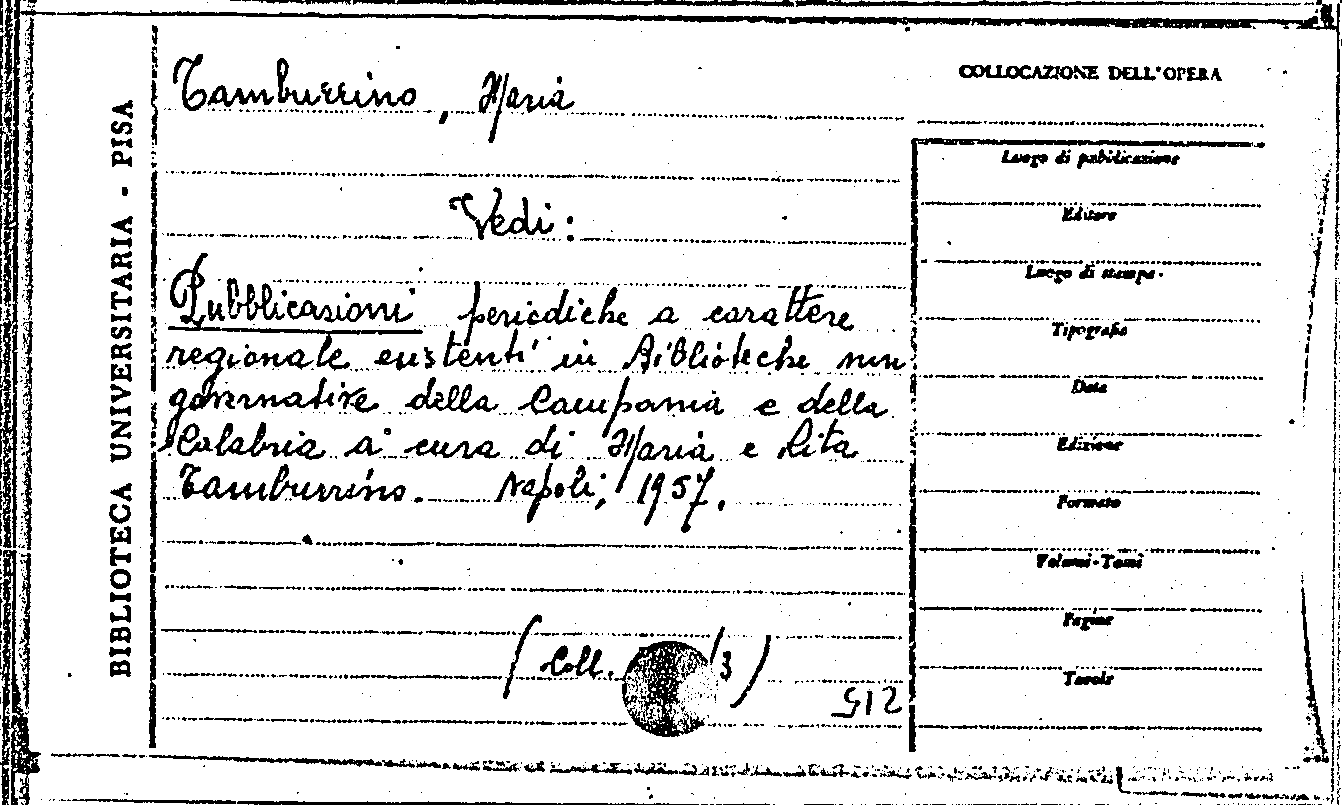 BIBLIOTECA UNIVERSITARIA - PISA
Tamburrino, Maria
Vedi:
Pubblicazioni periodiche a carattere
regionale esistenti in Biblioteche non
governative della Campania e della
Calabria a cura di Maria e Rita
Tamburrino. Napoli, 1957.
(Coll. /3)
512
COLLOCAZIONE DELL'OPERA
Luogo di pubblicazione
Editore
Luogo di stampa
Tipografia
Data
Edizione
Formato
Volumi-Tomi
Pagine
Tavole